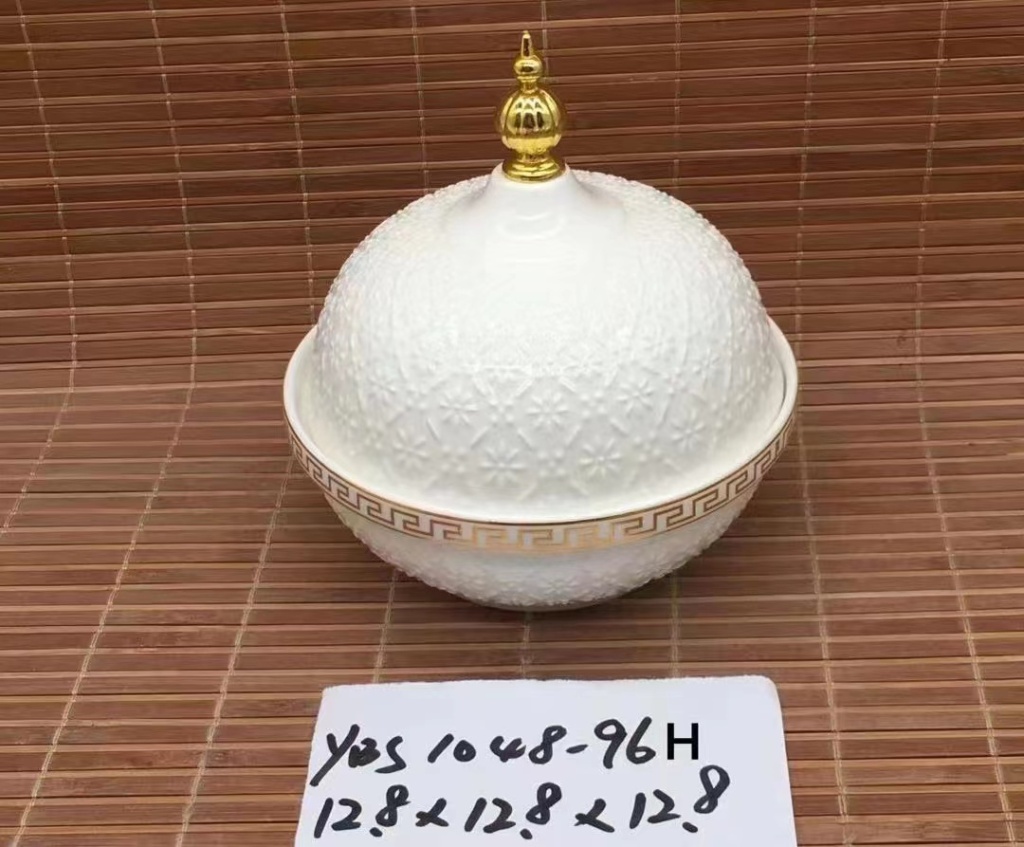 YBS 1048-96H
12.8x12.8x12.8